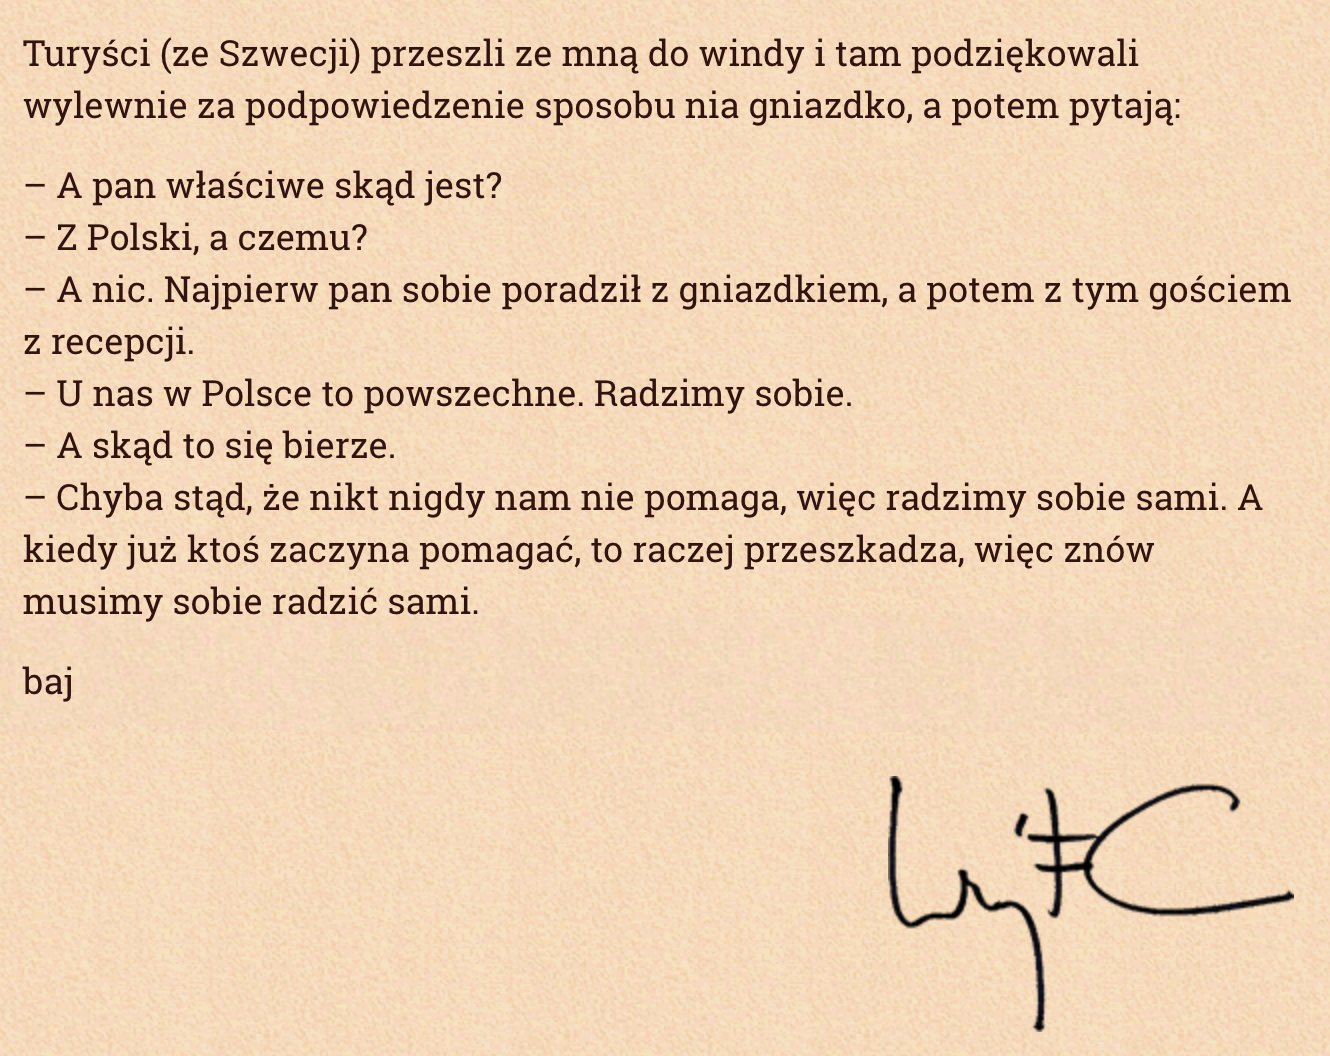 Turyści (ze Szwecji) przeszli ze mną do windy i tam podziękowali
wylewnie za podpowiedzenie sposobu nia gniazdko, a potem pytają:
– A pan właściwe skąd jest?
– Z Polski, a czemu?
– A nic. Najpierw pan sobie poradził z gniazdkiem, a potem z tym gościem
z recepcji.
– U nas w Polsce to powszechne. Radzimy sobie.
– A skąd to się bierze.
– Chyba stąd, że nikt nigdy nam nie pomaga, więc radzimy sobie sami. A
kiedy już ktoś zaczyna pomagać, to raczej przeszkadza, więc znów
musimy sobie radzić sami.
baj